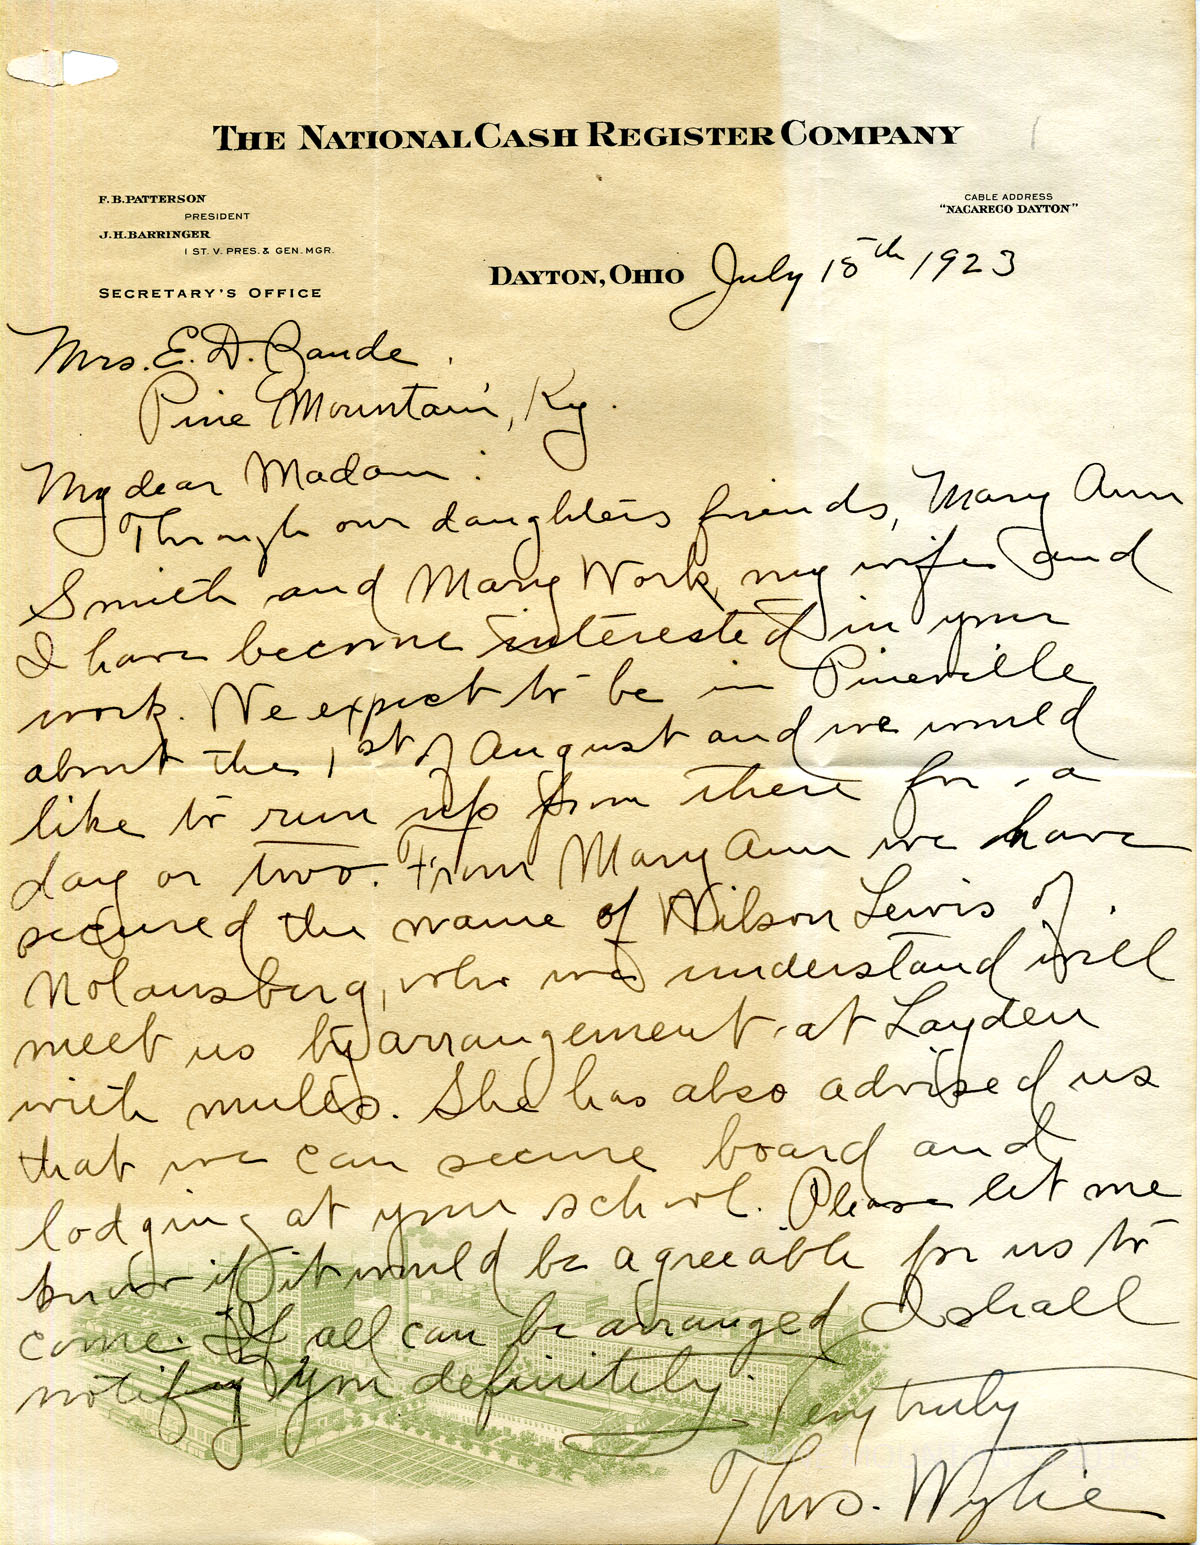 THE NATIONAL CASH REGISTER COMPANY
F.B. PATTERSON
PRESIDENT
J.H. BARRINGER
1 ST. V. PRES. & GEN. MGR.
SECRETARY'S OFFICE
CABLE ADDRESS
"NACAREGO DAYTON"
DAYTON, OHIO July 15th 1923
Mrs. E. D. Zande.
Pine Mountain, Ky.
My dear Madam:
Through our daughters friends, Mary Ann
Smith and Mary Work, my wife and
I have become interested in your
work. We expect to be in Pineville
about the 1st of August and we would
like to run up from there for a
day or two. From Mary Ann we have
secured the name of Wilson Lewis of
Nolansburg, who we understand will
meet us by arrangement at Layden
with mules. She has also advised us
that we can secure board and
lodging at your school. Please let me
know if it would be agreeable for us to
come. If all can be arranged I shall
notify you definitely.
Very truly
Thos. Wylie